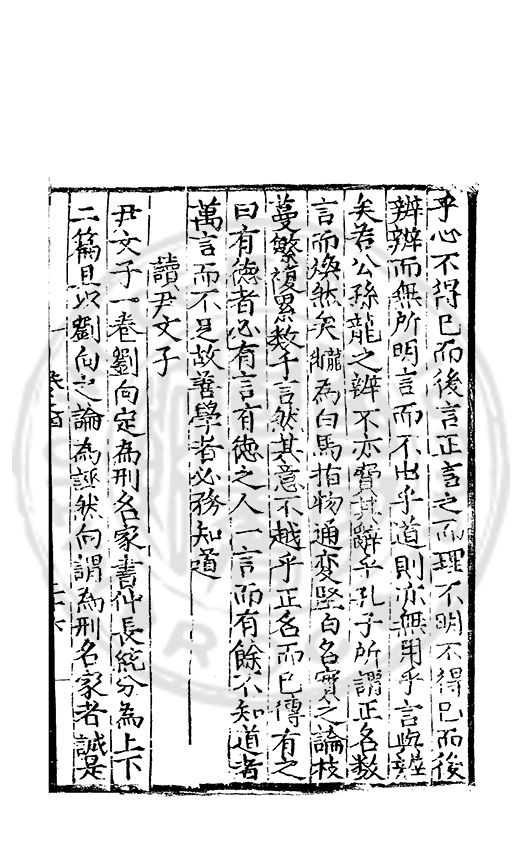 乎心不得已而後言正言之而理不明不得已而後
辨辨而無所明言而不出乎道則亦無用乎言與辨
矣若公孫龍之辨不亦費其辭乎孔子所謂正名數
言而煥然矣龍為白馬指物通變堅白名實之論枝
蔓繁複累數千言然其意不越乎正名而已傳有之
曰有德者必有言有德之人一言而有餘不知道者
萬言而不足故善學者必務知道
讀尹文子
尹文子一卷劉向定為刑名家書仲長統分為上下
二篇且以劉向之論為誣然向謂為刑名家者誠是